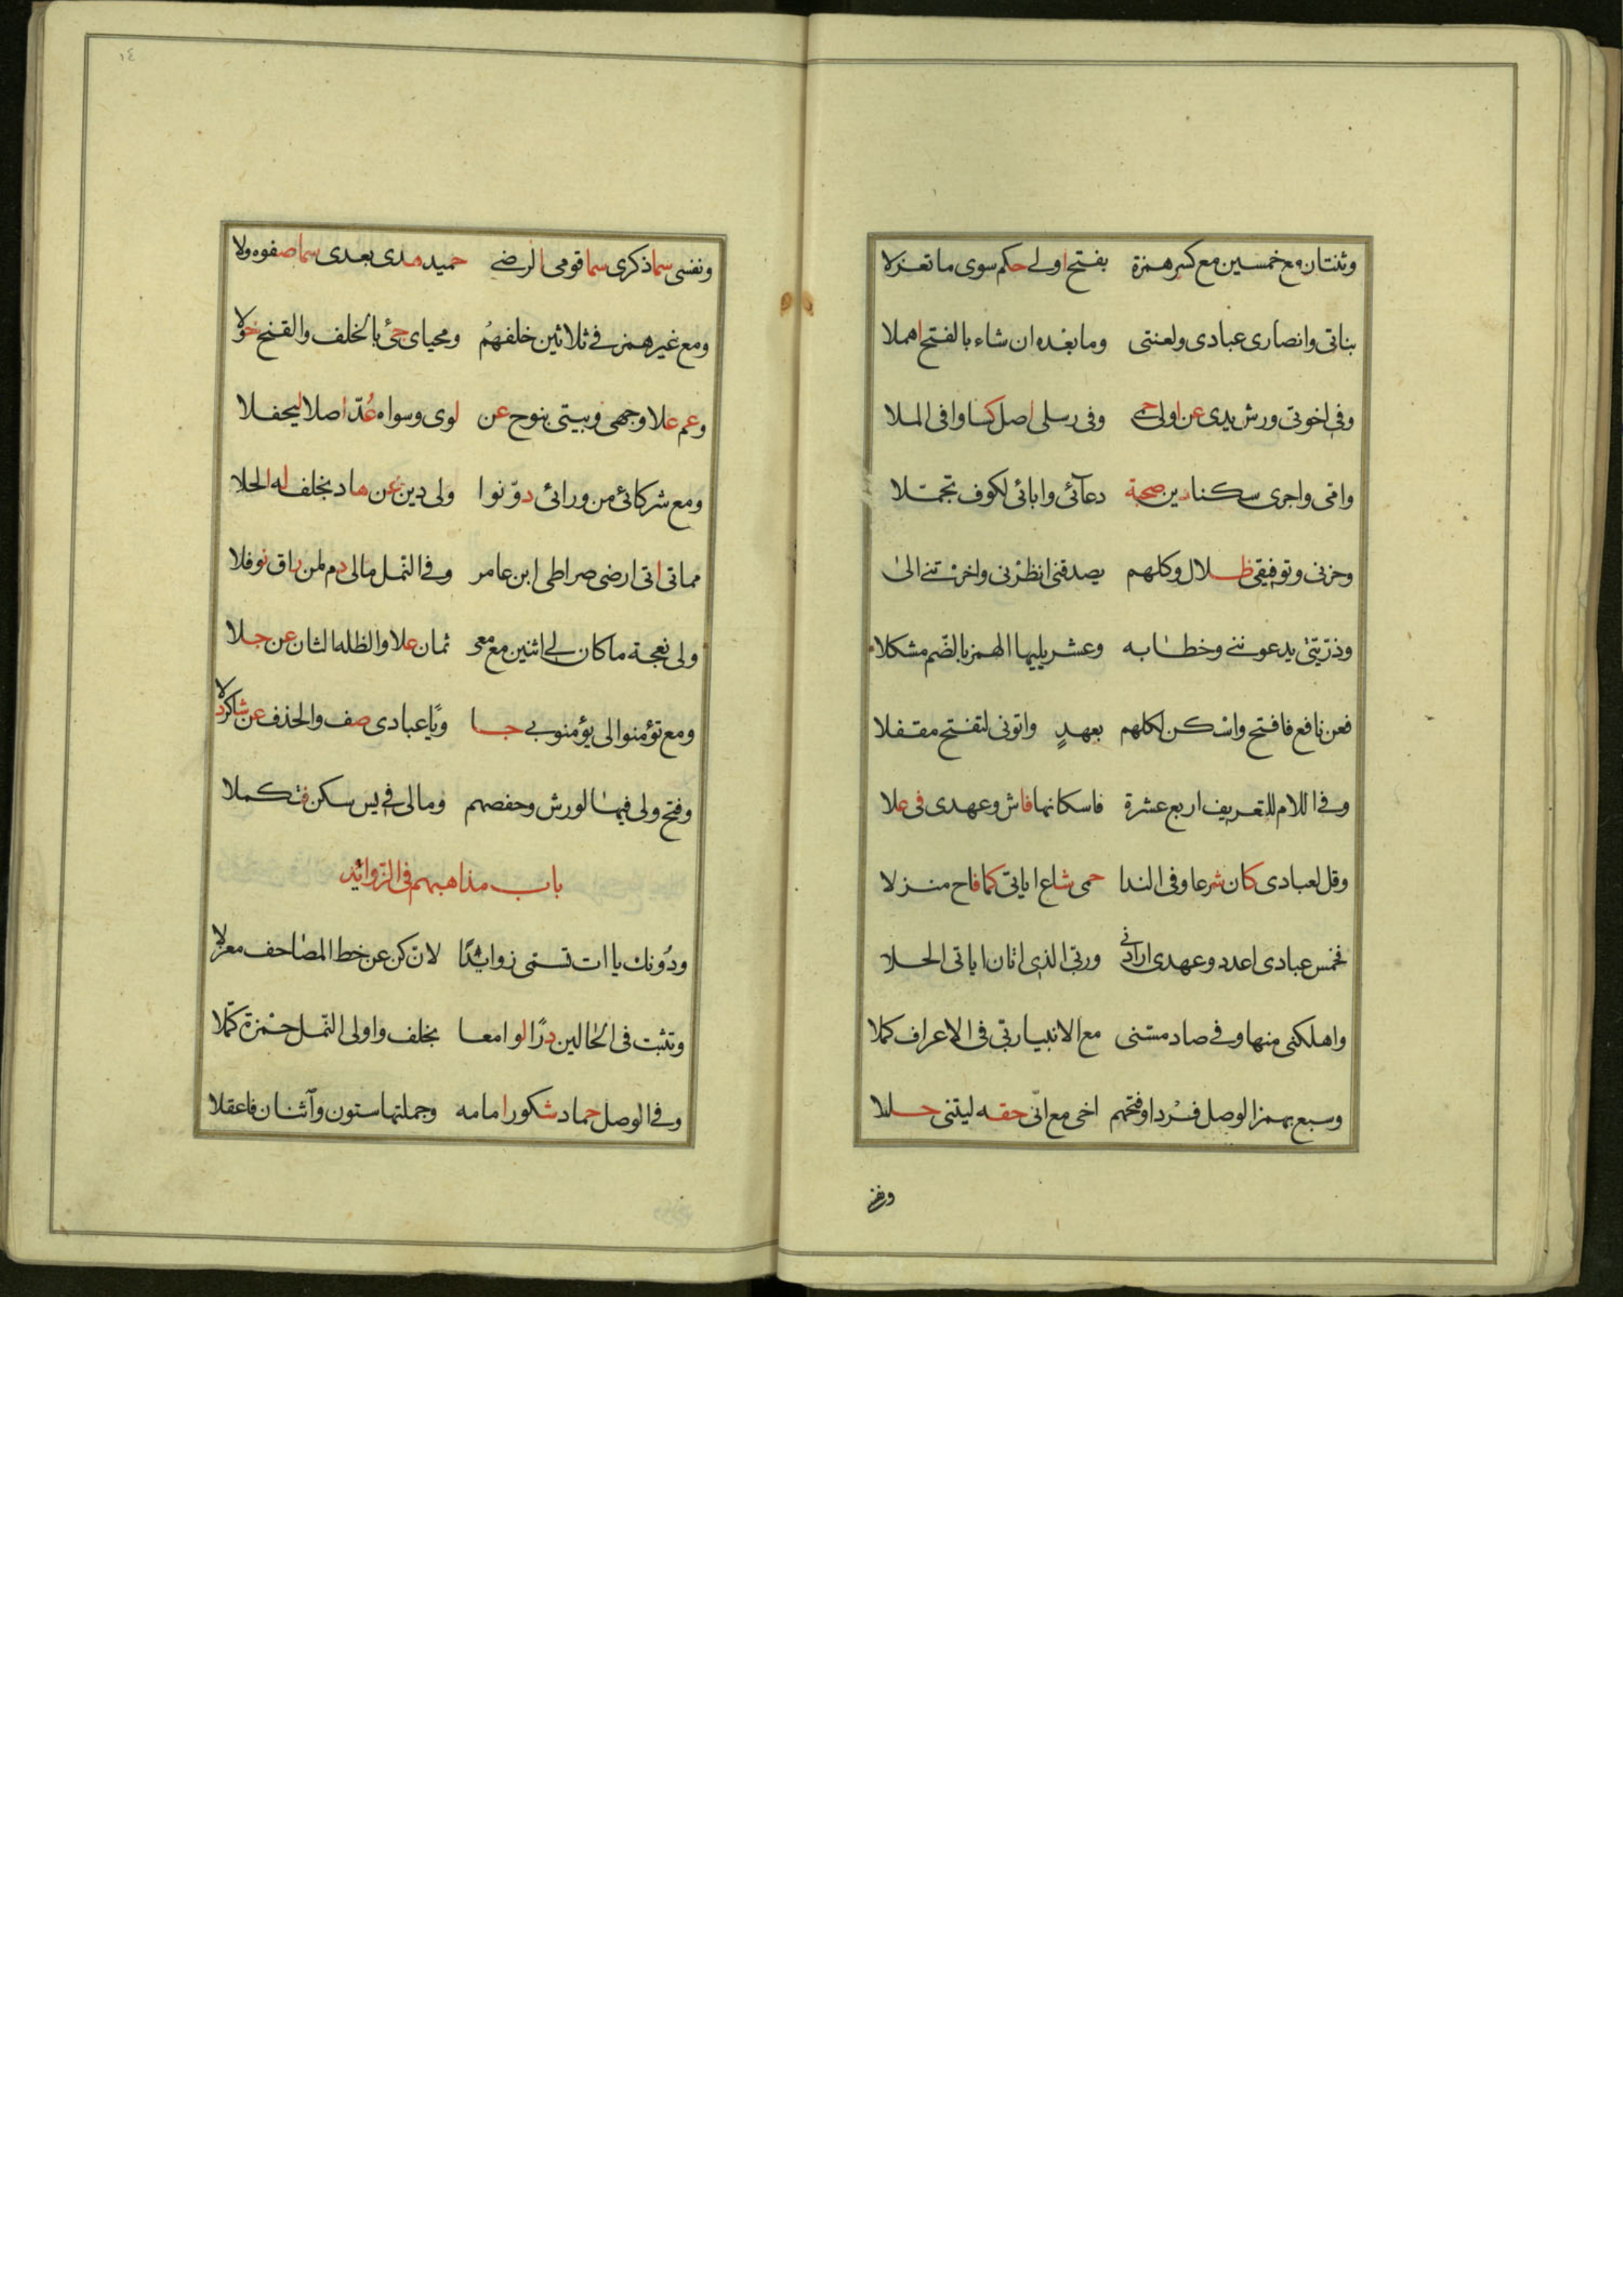 وثنتان مع خمسين مع كسر همزة بفتح اولى حكم سوى ما تعزلا
بناتى وانصارى عبادى ولعنتى وما بعده ان شاء بالفتح اهملا
وفى اخوتى ورش يدى عن اولى حمى وفى رسلى اصل كسا وافى الملا
وامى واجرى سكنا دين صحبة دعآئى وابائى لكوف تجملا
وحزنى وتوفيقى ظلال وكلهم يصدقنى انظرنى واخرتنى الى
وذريتى يدعوننى وخطابه وعشر يليها الهمز بالضم مشكلا
فعن نافع فافتح واسكن لكلهم بعهدٍ واتونى لتفتح مقفلا
وفى اللام للتعريف اربع عشرة فاسكانها فاش وعهدى فى علا
وقل لعبادى كان شرعا وفى الندا حمى شاع اياتى كما فاح منزلا
فخمس عبادى اعدد وعهدى ارادنى وربى الذى اتان اياتى الحلا
واهلكنى منها وفى صاد مسنى مع الانبيا ربى فى الاعراف كملا
وسبع بهمز الوصل فردا وفتحهم اخى مع انى حقه ليتنى حلا
ونفسى
١٤
ونفسى سما ذكرى سما قومى الرضى حميد هدى بعدى سما صفوه ولا
ومع غير همز فى ثلاثين خلفهم ومحياى جئ بالخلف والفتح خولا
وعم علا وجهى وبيتى بنوح عن لوى وسواه عُدّ اصلا ليحفلا
ومع شركائى من ورائى دوّنوا ولى دين عن هاد بخلف له الحلا
مماتى اتى ارضى صراطى ابن عامر وفى النمل مالى دم لمن راق نوفلا
ولى نعجة ما كان لى اثنين مع معى ثمان علا والظله الثان عن جلا
ومع تؤمنوا لى يؤمنوا بى جا ويا عبادى صف والحذف عن شاكر دلا
وفتح ولى فيها لورش وحفصهم ومالى فى يس سكن فتكملا
باب مذاهبهم فى الزوائد
ودُونك يا ات تسمى زوائدًا لان كن عن خط المصاحف معزلا
وتثبت فى الحالين درًا لوامعا بخلف واولى النمل حمزة كملا
وفى الوصل حماد شكور امامه وجملتها ستون واثنان فاعقلا